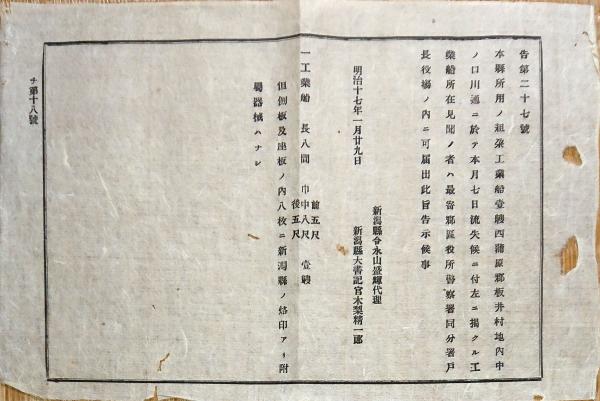 告第二十七號
本縣所用ノ粗朶工業船壹艘西蒲原郡板井村地內中
ノ口川通ニ於テ本月七日流失候ニ付左ニ揭クル工
業船所在見聞ノ者ハ最寄郡區役所警察署同分署戶
長役場ノ內ニ可届出此旨告示候事
明治十七年一月廿九日
新潟縣令永山盛輝代理
新潟縣大書記官木梨精一郎
一工業船 長八間 巾 前五尺 中八尺 後五尺 壹艘
但側板及座板ノ內八枚ニ新潟縣ノ烙印アリ附
屬器械ハナシ
チ第十八號